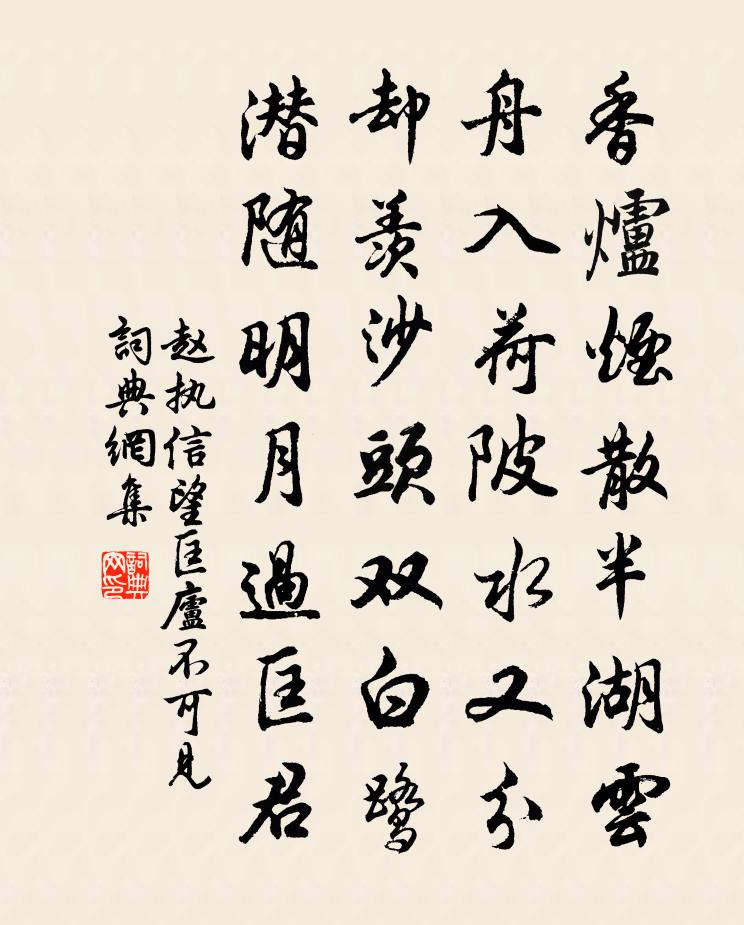 香爐煙散半湖雲
舟入荷陂水又分
却羨沙頭双白鹭
潜随明月過匡君
赵执信望匡廬不可見
詞典網集
詞典
网印